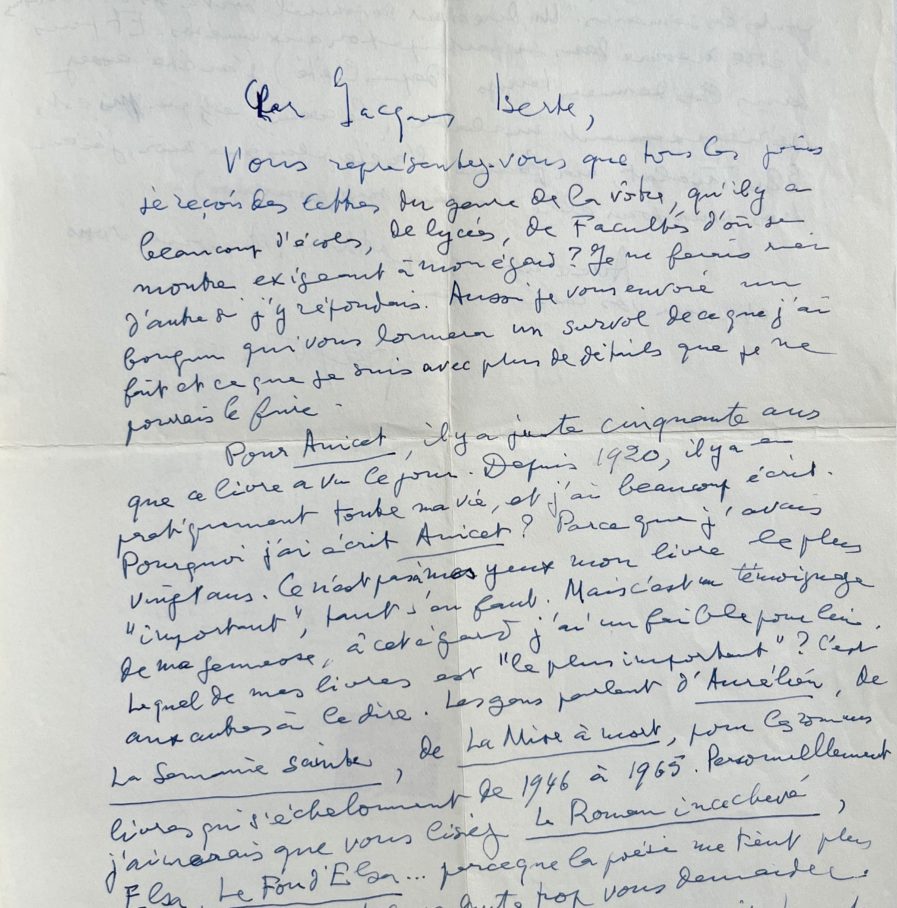 Cher Jacques
Vous représentez-vous que tous les jours
je reçois des lettres du genre de la vôtre, qu'il y a
beaucoup d'écoles, de lycées, de Facultés d'où se
montre exigeant à mon égard ? Je ne ferais rien
d'autre si j'y répondais. Aussi je vous envoie un
bouquin qui vous donnera un survol de ce que j'ai
fait et ce que je suis avec plus de détails que je ne
pourrais le faire.
Pour Anicet, il y a juste cinquante ans
que ce livre a vu le jour. Depuis 1920, il y a eu
pratiquement toute ma vie, et j'ai beaucoup écrit.
Pourquoi j'ai écrit Anicet ? Parce que j'avais
vingt ans. Ce n'est pas à mes yeux mon livre le plus
"important", tant s'en faut. Mais c'est un témoignage
de ma jeunesse, à cet égard j'ai un faible pour lui.
Lequel de mes livres est "le plus important" ? C'est
aux autres à le dire. Les gens parlent d'Aurélien, de
La Semaine sainte, de La Mise à mort, pour les romans
livres qui s'échelonnent de 1946 à 1965. Personnellement
j'aimerais que vous lisiez Le Roman inachevé,
Elsa, Le Fou d'Elsa... parce que la poésie me tient plus
trop vous demander.